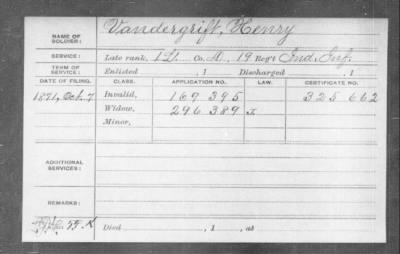 NAME OF SOLDIER: Vandergrift, Henry
SERVICE: Late rank, 1 Lt. Co. A, 19 Reg't Ind. Inf.
TERM OF SERVICE: Enlisted , 1 Discharged , 1
DATE OF FILING. CLASS. APPLICATION NO. LAW. CERTIFICATE NO.
1871, Oct. 7 Invalid, 169 395 325 662
Widow, 296 389
Minor,
ADDITIONAL SERVICES:
REMARKS:
Died , 1 , at